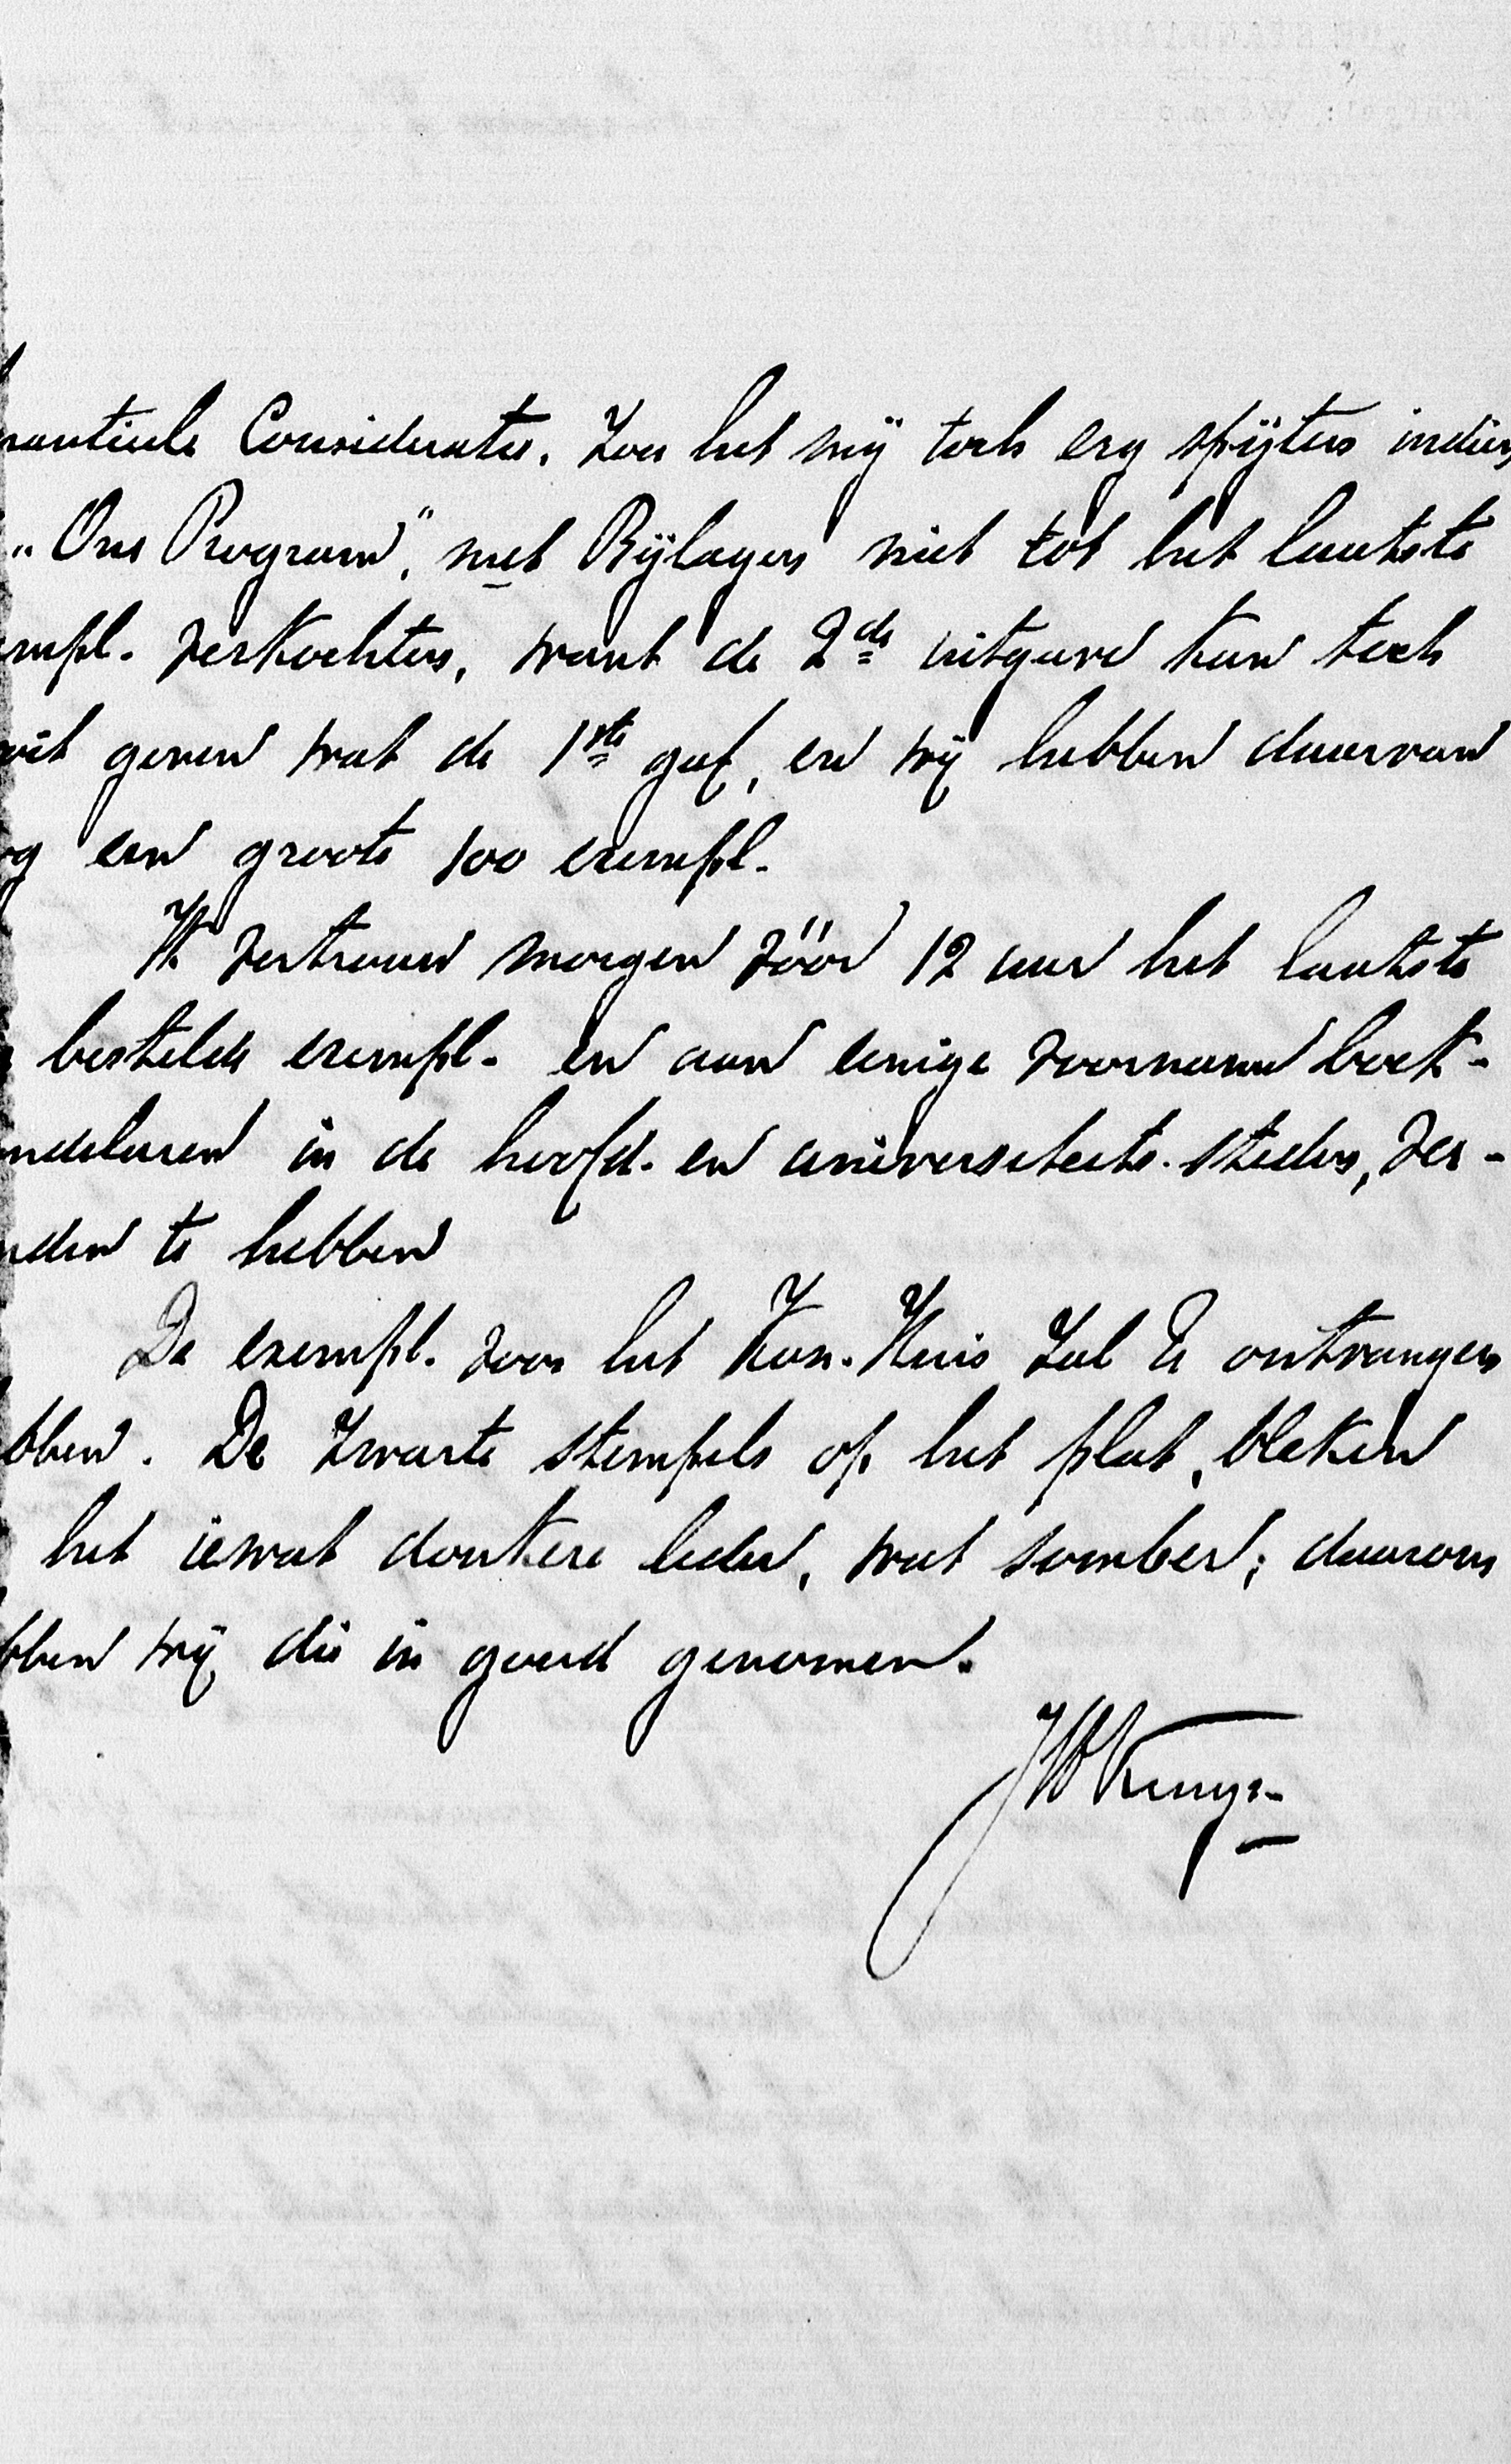 nantieele Consideratie. Zou het mij toch erg spijten indien
„Ons Program”, met Bijlagen niet tot het laatste
empl. verkochten, want de 2de uitgave kan toch
oit geven wat de 1ste gaf, en wij hebben daarvan
og een groote 100 exempl.
Ik vertrouw morgen vóór 12 uur het laatste
bestelde exempl. en aan eenige voorname boek-
ndelaren in de hoofd- en universiteits-steden, ver-
nden te hebben
De exempl. voor het Kon. Huis zal U ontvangen
bben. De zwarte stempels op het plat, bleken
het iewat donkere leder, wat somber; daarom
bben wij die in goud genomen.
JWKruyt